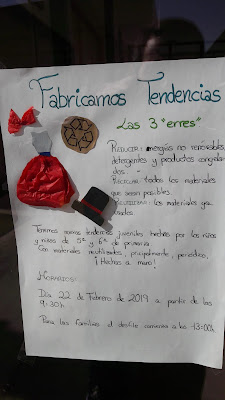 Fabricamos Tendencias
Las 3 "erres"
REDUCIR: energías no renovables,
detergentes y productos congela-
dos.
RECICLAR: todos los materiales
que sean posibles.
los materiales ya
usados.
Tenemos nuevas tendencias juveniles hechas por los niños
y niñas de 5º y 6º de primaria.
Con materiales reutilizados, principalmente, periódico,
¡Hechos a mano!
HORARIOS:
Día 22 de Febrero de 2019 a partir de las
9:30h.
Para las familias el desfile comienza a las 13:00h